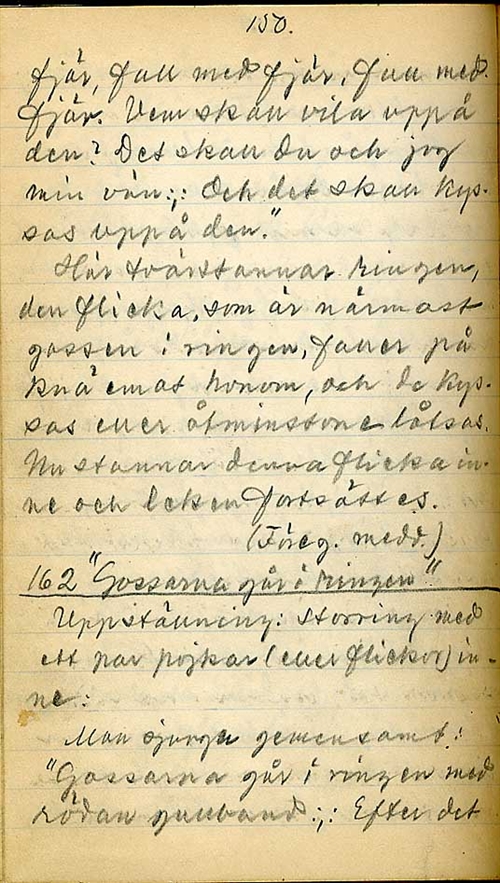 150.
fjär, fall med fjär, fall med
fjär. Vem skall vila uppå
den? Det skall du och jag
min vän:,: Och det skall kys-
sas uppå den."
Här tvärstannar ringen,
den flicka, som är närmast
gossen i ringen, faller på
knä emot honom, och de kys-
sas eller åtminstone låtsas.
Nu stannar denna flicka in-
ne och leken fortsättes.
(Föreg. medd.)
162 "Gossarna går i ringen".
Uppställning: Storring med
ett par pojkar (eller flickor) in-
ne:
Man sjunga gemensamt:
"Gossarna går i ringen med
rödan gullband:,: Efter det